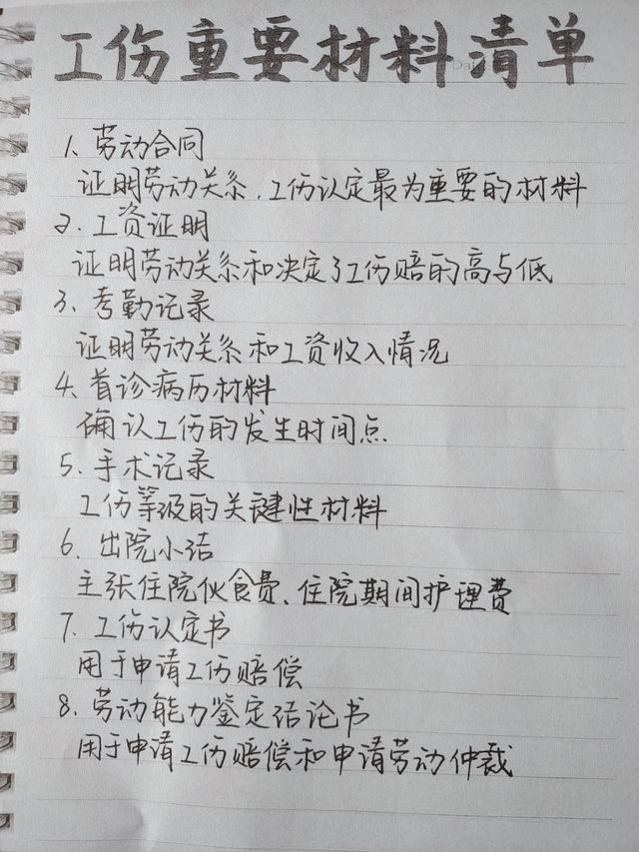 工伤重要材料清单
1、劳动合同
证明劳动关系，工伤认定最为重要的材料
2、工资证明
证明劳动关系和决定了工伤赔的高与低
3、考勤记录
证明劳动关系和工资收入情况
4、首诊病历材料
确认工伤的发生时间点
5、手术记录
工伤等级的关键性材料
6、出院小结
主张住院伙食费、住院期间护理费
7、工伤认定书
用于申请工伤赔偿
8、劳动能力鉴定结论书
用于申请工伤赔偿和申请劳动仲裁